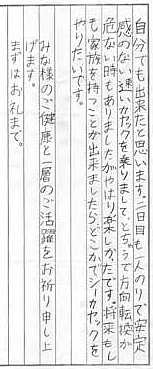 自分でも出来たと思います。二日目も一人のりで安定
感のない速いカヤックを乗りまして、とちゅうで方向転換が
危ない時もありましたがやはり楽しかったです。将来もし
も家族を持つことが出来ましたら、どこかでシーカヤックを
やりたいです。
みな様のご健康と一層のご活躍をお祈り申し上
げます。
まずはお礼まで。